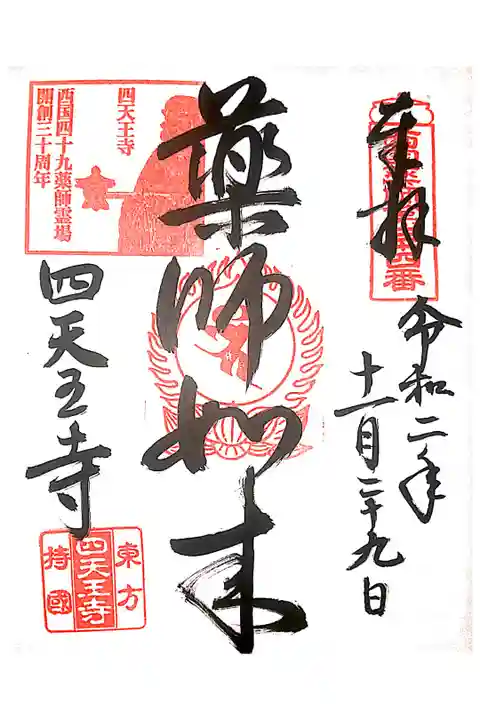 奉拝
令和二年
十一月二十九日
薬師如来
四天王寺
西国四十九薬師霊場
開創三十周年
四天王寺
東方
四天王寺
持國